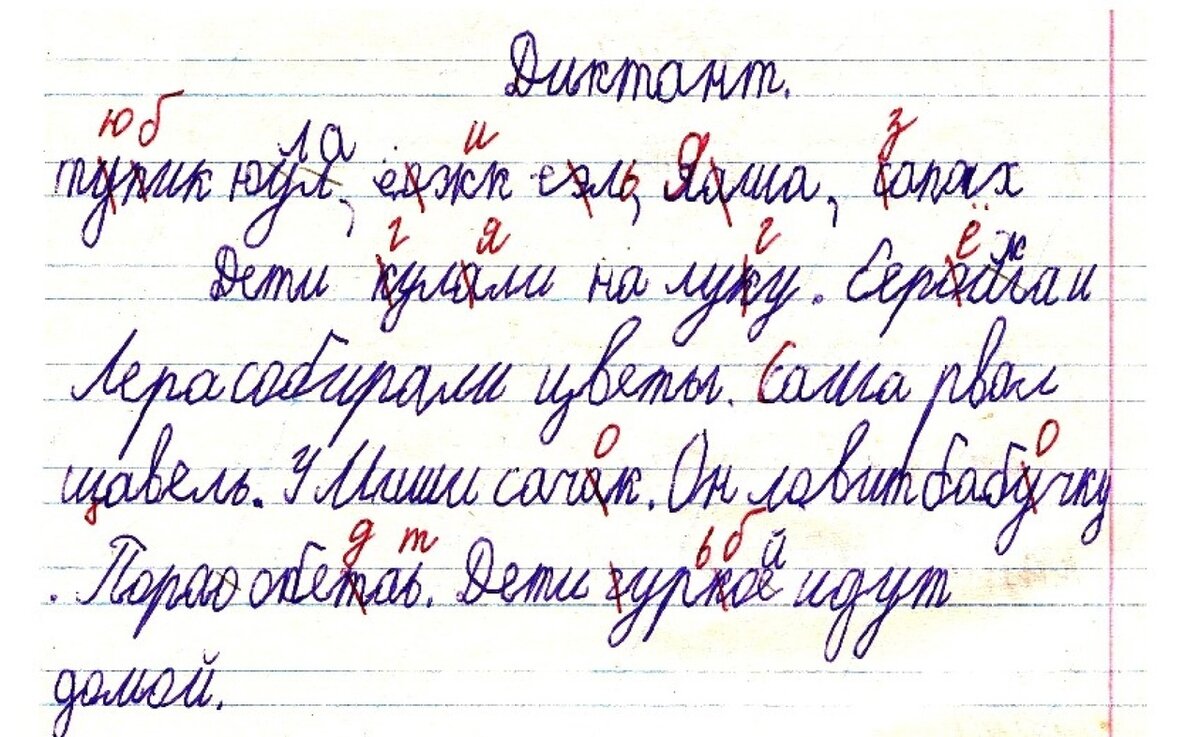 Диктант.
ю б ла и я з
тупик юул, ёажк еэль, Яаша, сапах
г я г ё ж
Дети кулали на луку. Сераагаи
Лера собирали цветы. Саша рвал
о о
щавель. У Миши сачак. Он ловит бабучку
д т ь б й
. Порао обетаь. Дети гуркое идут
домой.